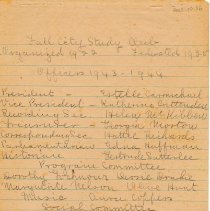 Fall City Study Club
Organized 1922 Federated 1925
Officers 1943-1944
President - Estelle Carmichael
Vice President - Katherine Crittenden
Recording Sec. Helene McKibben
Treasurer - Georgia Morton
Corresponding Sec. Hattie Richards
Parliamentarian Edna Huffman
Historian Gertrude Satterlee
Program Committee
Dorothy Parmour
Marguerite Nelson Olive Hunt
Music
Social Committee